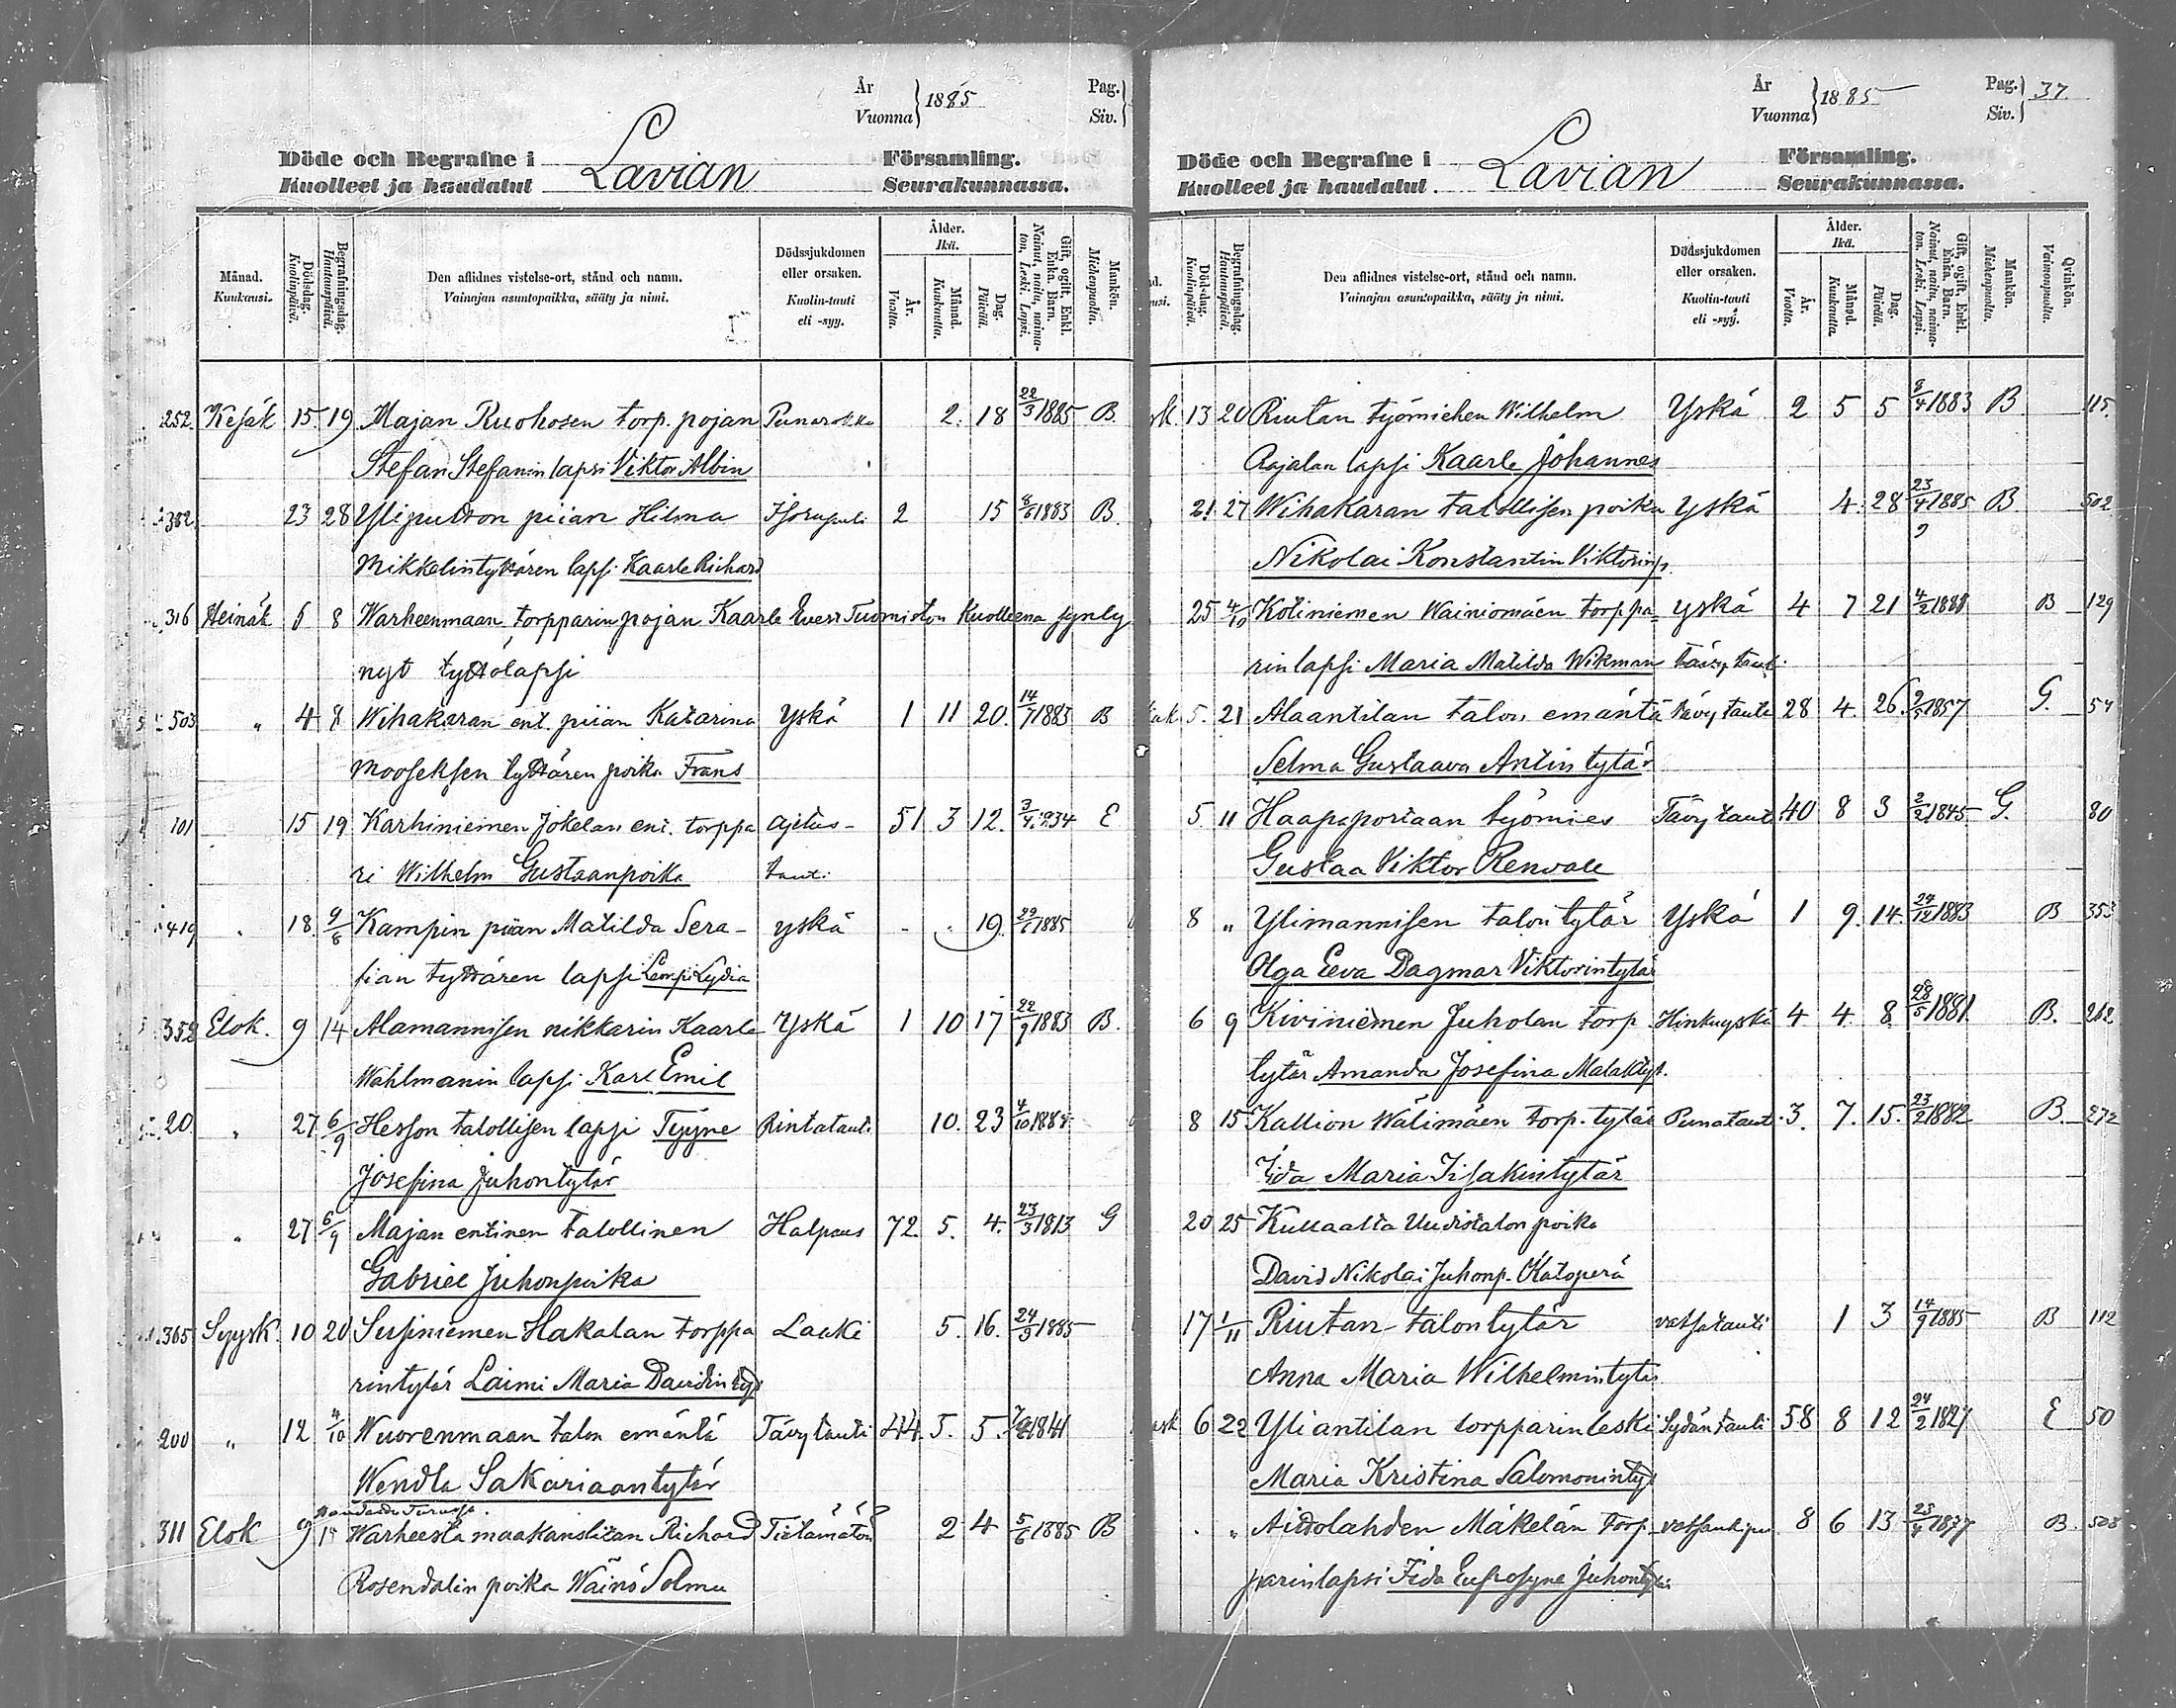 År
Vuonna } 1885
Pag.
Siv.
Döde och Begrafne i
Kuolleet ja haudatut
Lavian
Församling.
Seurakunnassa.
Månad. Kuukausi.
Dödsdag. Kuolinpäivä.
Begrafningsdag. Hautauspäivä.
Den aflidnes vistelse-ort, stånd och namn.
Vainajan asuntopaikka, sääty ja nimi.
Dödssjukdomen eller orsaken.
Kuolin-tauti eli -syy.
Ålder. Ikä.
År. Vuotta.
Månad. Kuukautta.
Dag. Päivää.
Gift, ogift, Enkl. Enka. Barn.
Nainut, naitu, naimaton, Leski. Lapsi.
Mankön. Miehenpuolta.
252 Kesäk 15 19 Majan Ruohosen torp. pojan Punarokko 2. 18 22/3 1885 B.
Stefan Stefanin lapsi Viktor Albin
382 23 28 piian Hilma 2 15 1883 B.
Mikkelintyttären lapsi Kaarle Richard
316 Heinäk 6 8 Warheenmaan torpparin pojan Kaarle Evert Tuomiston Kuolleena synty
nyt tyttölapsi
503 " 4 8 Wihakaran ent. piian Katarina Yskä 1 11 20. 14/7 1883 B
Mooseksen tyttären poika Frans
101 15 19 Karhiniemen Jokelan ent. torppa Ajetus- 51 3 12. 3/4 1834 E
ri Wilhelm Gustaanpoika tauti
419 " 18 9/8 Kampin piian Matilda Sera- yskä - " 19 29/6 1885
fian tyttären lapsi Lempi Lydia
352 Elok. 9 14 Alamannisen nikkarin Kaarle Yskä 1 10 17 22/9 1883 B.
Wahlmanin lapsi Karl Emil
20. " 27 6/9 Hesson talollisen lapsi Tyyne Rintatauti 10. 23 4/10 1884
Josefina Juhontytär
" 27 6/9 Majan entinen talollinen Halpaus 72. 5. 4. 23/3 1813 G
Gabriel Juhonpoika
365 Syysk. 10 20 Susiniemen Hakalan torppa Laaki 5. 16. 24/3 1885
rintytär Laimi Maria Davidintyt
200 " 12 4/10 Wuorenmaan talon emäntä Tävytauti 44. 5. 5. 1841
Wendla Sakariaantytär
311 Elok 9 15 Warheesta maakansliaan Richard Tietämätön? 2 4 5/6 1885 B
Rosendalin poika Wäinö Solmu
År
Vuonna } 1885
Pag.
Siv. } 37.
Döde och Begrafne i
Kuolleet ja haudatut.
Lavian
Församling.
Seurakunnassa.
Dödsdag. Kuolinpäivä.
Begrafningsdag. Hautauspäivä.
Den aflidnes vistelse-ort, stånd och namn.
Vainajan asuntopaikka, sääty ja nimi.
Dödssjukdomen eller orsaken.
Kuolin-tauti eli -syy.
Ålder. Ikä.
År. Vuotta.
Månad. Kuukautta.
Dag. Päivää.
Gift, ogift. Enkl. Enka. Barn.
Nainut, naitu, naimaton. Leski. Lapsi.
Mankön. Miehenpuolta.
Qvinkön. Vaimonpuolta.
13 20 Riutan työmiehen Wilhelm Yskä 2 5 5 8/4 1883 B 115
Rajalan lapsi Kaarle Johannes
21 27 Wihakaran talollisen poika Yskä 4. 28 23/4 1885 B 502
Nikolai Konstantin Viktorinp.
25 4/10 Kotiniemen Wainiomäen torppa= yskä 4 7 21 4/2 1881 B 129
rin lapsi Maria Matilda Wikman tävytauti
5. 21 Alaantilan talon emäntä tävytauti 28 4. 26. 9/5 1857 G. 54
Selma Gustaava Antintytär
5. 11 Haapaportaan työmies Tävytauti 40 8 3 2/2 1845 G. 80
Gustaa Viktor Renvall
8 " Ylimannisen talontytär Yskä 1 9. 14. 24/12 1883 B 353
Olga Eeva Dagmar Viktorintytär
6 9 Kiviniemen Juholan torp Hinkuyskä 4 4. 8. 28/5 1881. B. 262
tytär Amanda Josefina Malakityt.
8 15 Kallion Wälimäen torp. tytär Punataut. 3. 7. 15. 23/2 1882 B. 272
Iida Maria Iisakintytär
20 25 Kullaalta Uudistalon poika
David Nikolai Juhonp. Katsperä
17 1/11 Riutan talontytär vatsatauti 1 3 14/9 1885 B 112
Anna Maria Wilhelmintytär
6 22 Yliantilan torpparinleski Sydäntauti 58 8 12 24/2 1827 E 50
Maria Kristina Salomonintyt
. " Aittolahden Mäkelän torp 8 6 13 23/4 1877 B. 503
parinlapsi Iida Eufrosyne Juhontytär